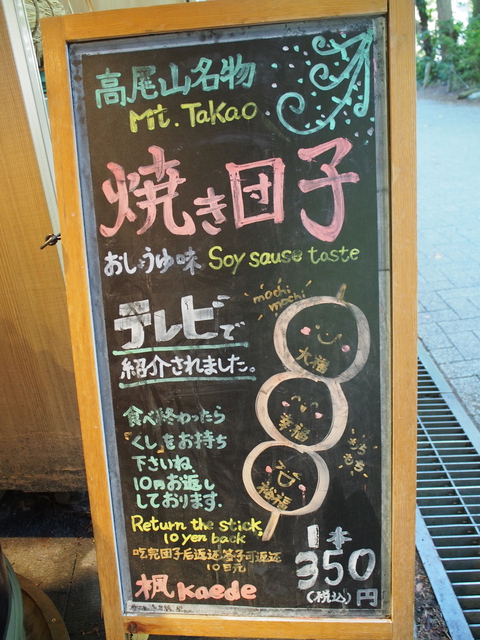 高尾山名物
Mt. Takao
焼き団子
おしょうゆ味 Soy sause taste
テレビで
紹介されました。
mochi
mochi
大福
幸福
裕福
もちもち
食べ終わったら
『くし』をお持ち
下さいね
10円お返し
しております。
Return the stick
10 yen back
吃完团子后返还签子可返还
10日元
1本
350円
(税込)
楓 kaede